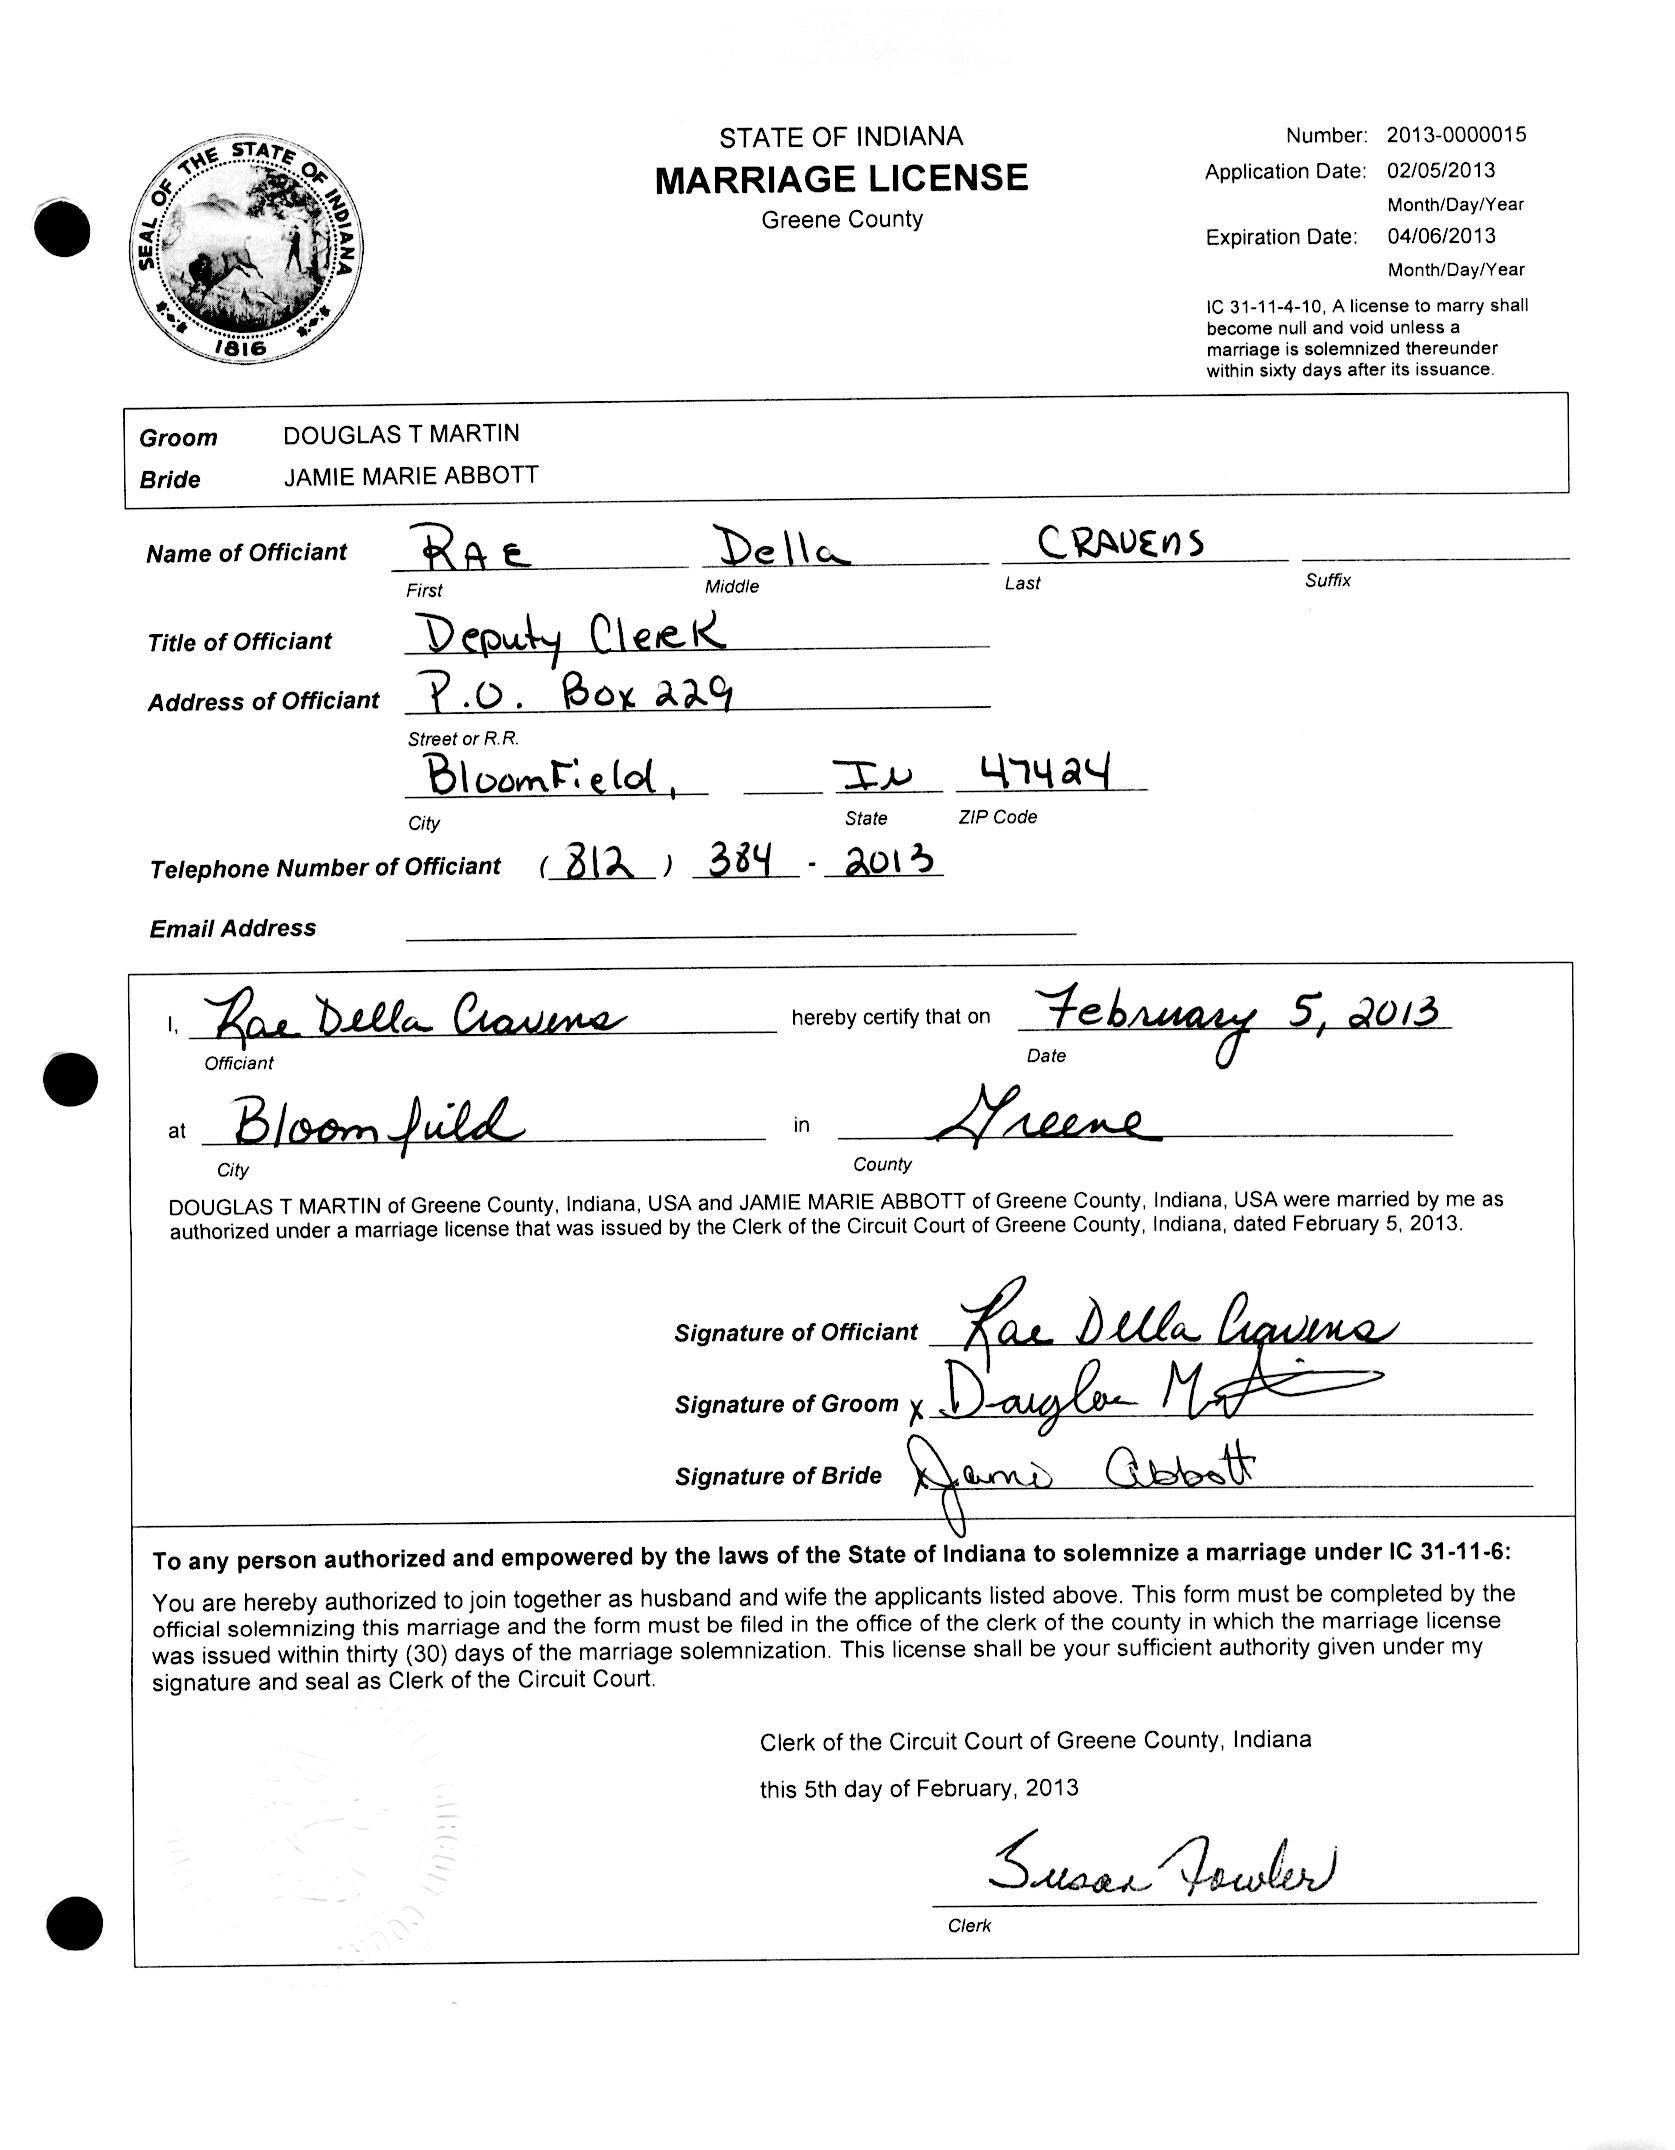 SEAL OF THE STATE OF INDIANA
1816
STATE OF INDIANA
MARRIAGE LICENSE
Greene County
Number: 2013-0000015
Application Date: 02/05/2013
Month/Day/Year
Expiration Date: 04/06/2013
Month/Day/Year
IC 31-11-4-10, A license to marry shall
become null and void unless a
marriage is solemnized thereunder
within sixty days after its issuance.
Groom DOUGLAS T MARTIN
Bride JAMIE MARIE ABBOTT
Name of Officiant RAE Della CRAVENS
First Middle Last Suffix
Title of Officiant Deputy Clerk
Address of Officiant P.O. Box 229
Street or R.R.
Bloomfield, IN 47424
City State ZIP Code
Telephone Number of Officiant (812) 384 - 2013
Email Address
I, Rae Della Cravens hereby certify that on February 5, 2013
Officiant Date
at Bloomfield in Greene
City County
DOUGLAS T MARTIN of Greene County, Indiana, USA and JAMIE MARIE ABBOTT of Greene County, Indiana, USA were married by me as
authorized under a marriage license that was issued by the Clerk of the Circuit Court of Greene County, Indiana, dated February 5, 2013.
Signature of Officiant Rae Della Cravens
Signature of Groom x Douglas Martin
Signature of Bride x Jami Abbott
To any person authorized and empowered by the laws of the State of Indiana to solemnize a marriage under IC 31-11-6:
You are hereby authorized to join together as husband and wife the applicants listed above. This form must be completed by the
official solemnizing this marriage and the form must be filed in the office of the clerk of the county in which the marriage license
was issued within thirty (30) days of the marriage solemnization. This license shall be your sufficient authority given under my
signature and seal as Clerk of the Circuit Court.
Clerk of the Circuit Court of Greene County, Indiana
this 5th day of February, 2013
Susan Fowler
Clerk